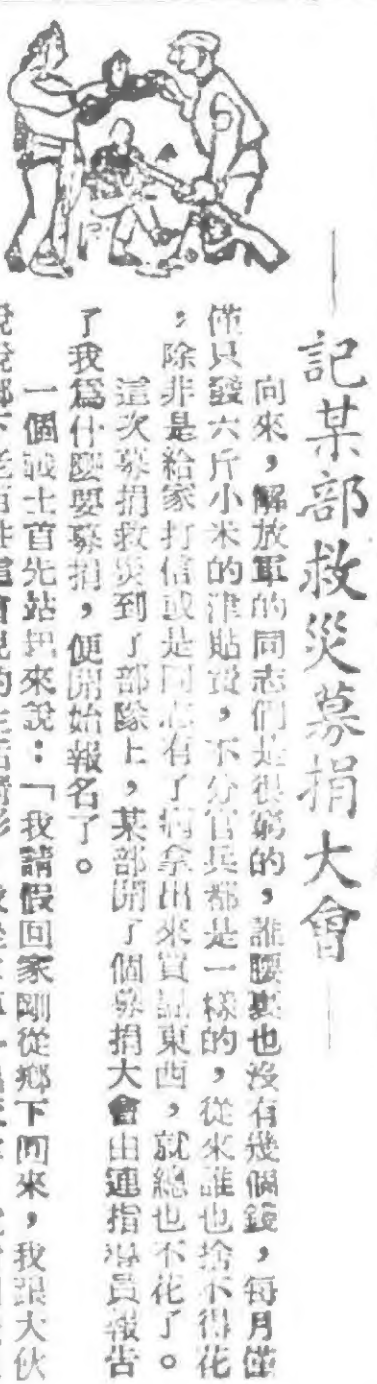 記某部救災募捐大會
向來，解放軍的同志們是很窮的，誰腰裏也沒有幾個錢，每月僅
僅只發六斤小米的津貼費，不分官兵都是一樣的，從來誰也捨不得花
，除非是給家打信或是同志有了病拿出來買點東西，就總也不花了。
這次募捐救災到了部隊上，某部開了個募捐大會由連指導員報告
了我爲什麼要募捐，便開始報名了。
一個戰士首先站起來說：「我請假回家剛從鄉下回來，我跟大伙